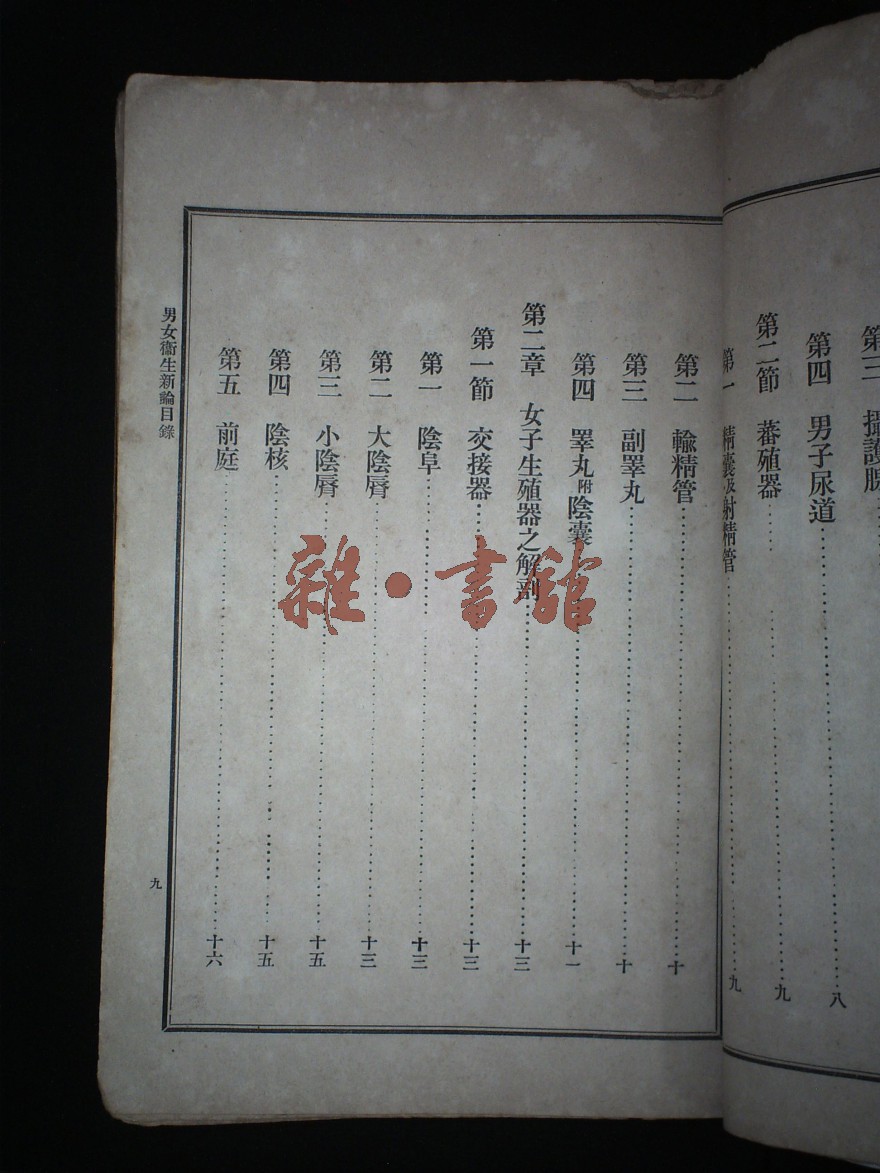 第三 攝護腺
第四 男子尿道 八
第二節 蕃殖器 九
第一 精囊及射精管 九
第二 輸精管 十
第三 副睪丸 十
第四 睪丸附陰囊 十一
第二章 女子生殖器之解剖 十三
第一節 交接器 十三
第一 陰阜 十三
第二 大陰脣 十三
第三 小陰脣 十五
第四 陰核 十五
第五 前庭 十六
男女衞生新論目錄 九
雜·書館